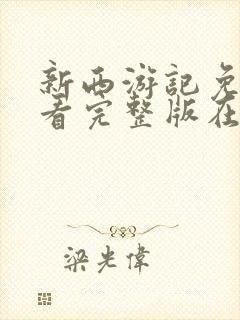 新西游记免
看完整版在
梁光偉